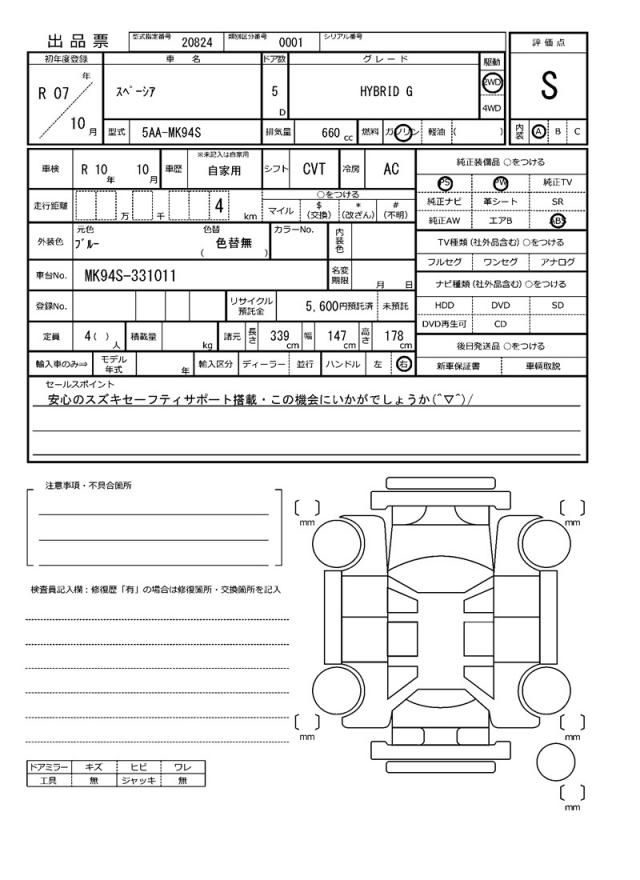 出品票 型式指定番号 20824 類別区分番号 0001 シリアル番号
評価点
S
初年度登録 車名 ドア数 グレード 駆動
R 07 年 10 月 スペーシア 5 D HYBRID G 2WD 4WD
型式 5AA-MK94S 排気量 660 cc 燃料 ガソリン 軽油 ( )
内装 A B C
車検 R 10 年 10 月 車歴 ※未記入は自家用 自家用 シフト CVT 冷房 AC
走行距離 万 千 4 km ○をつける
マイル $(交換) *(改ざん) #(不明)
外装色 元色 ブルー 色替 色替無 ( ) カラーNo. 内装色
車台No. MK94S-331011 名変期限 月 日
登録No. リサイクル預託金 5,600円預託済 未預託
定員 4( )人 積載量 kg 諸元 長さ 339 cm 幅 147 cm 高さ 178 cm
輸入車のみ⇒ モデル年式 年 輸入区分 ディーラー 並行 ハンドル 左 右
純正装備品 ○をつける
PS PW 純正TV
純正ナビ 革シート SR
純正AW エアB ABS
TV種類(社外品含む)○をつける
フルセグ ワンセグ アナログ
ナビ種類(社外品含む)○をつける
HDD DVD SD
DVD再生可 CD
後日発送品 ○をつける
新車保証書 車輌取説
セールスポイント
安心のスズキセーフティサポート搭載・この機会にいかがでしょうか(^▽^)/
注意事項・不具合箇所
検査員記入欄：修復歴「有」の場合は修復箇所・交換箇所を記入
〔 〕mm 〔 〕mm
〔 〕mm 〔 〕mm
〔 〕mm
ドアミラー キズ ヒビ ワレ
工具 無 ジャッキ 無